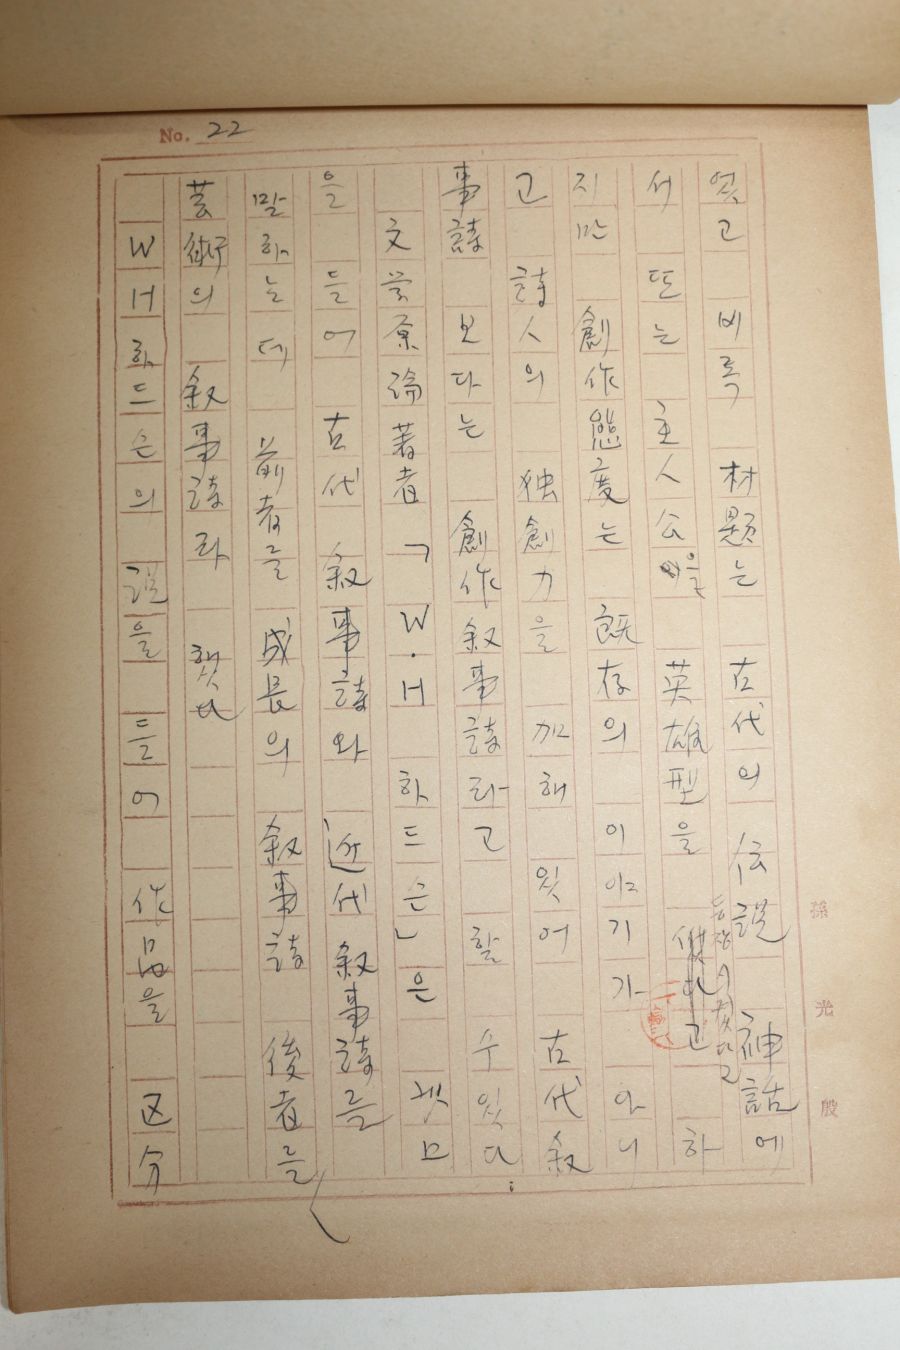 No. 22
었고 비록 材題는 古代의 伝説 神話에
서 또는 主人公을 英雄型을 하
등장시켰다고
지만 創作態度는 既存의 이야기가 아니
고 詩人의 独創力을 加해 있어 古代叙
事詩 보다는 創作叙事詩라고 할 수 있다
文学原論著者 「W.H 하드슨」은
을 들어 古代 叙事詩와 近代 叙事詩를
말하는데 前者를 成長의 叙事詩 後者를
芸術의 叙事詩라 했다
W H 하드슨의 説을 들어 作品을 区分
孫光殷